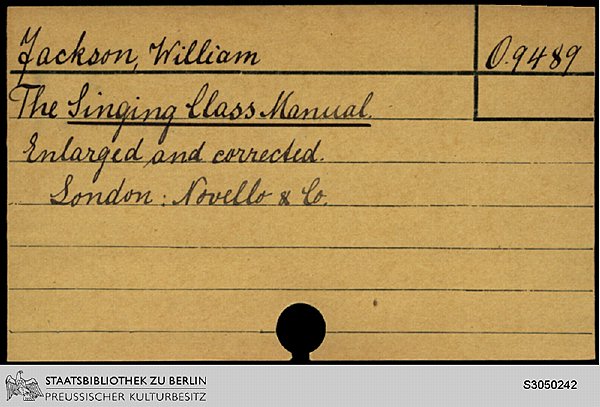 Jackson, William
O.9489
The Singing Class Manual.
Enlarged and corrected.
London: Novello & Co.
STAATSBIBLIOTHEK ZU BERLIN
PREUSSISCHER KULTURBESITZ
S3050242